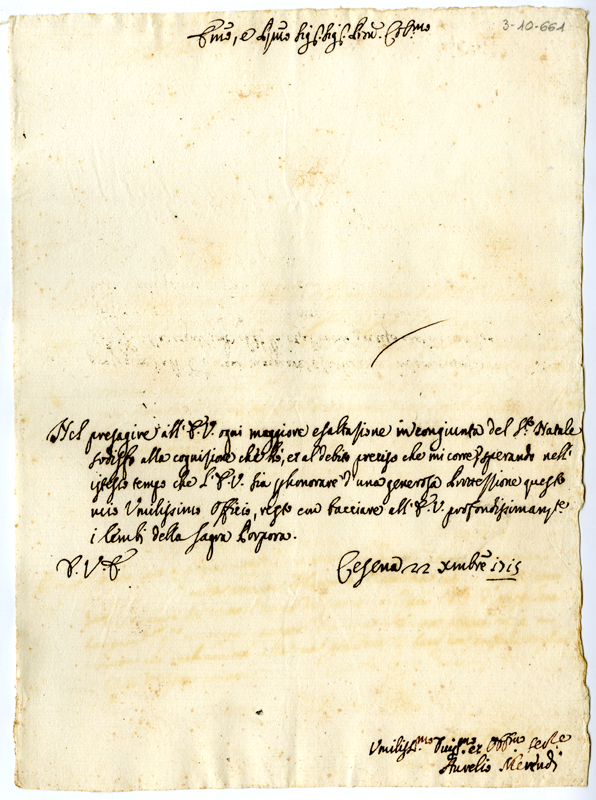 3-10-661
Emo, e Rmo Sigr. Sigr. Pron. Colmo
Nel presagire all' E.V. ogni maggiore esaltasione in congiunta del So. Natale
sodisfo alla cognisione che hò, et al debito preciso che mi corre, sperando nell'
istesso tempo che L'E.V. sia p honorare d'una generosa Protessione questo
mio Umilissimo Officio, resto con bacciare all' E.V. profondissimamte.
i lembi della Sagra Porpora.
E.V.E Cesena 22 Xmbre 1715
Umilissmo et Obbmo
Aurelio Merendi